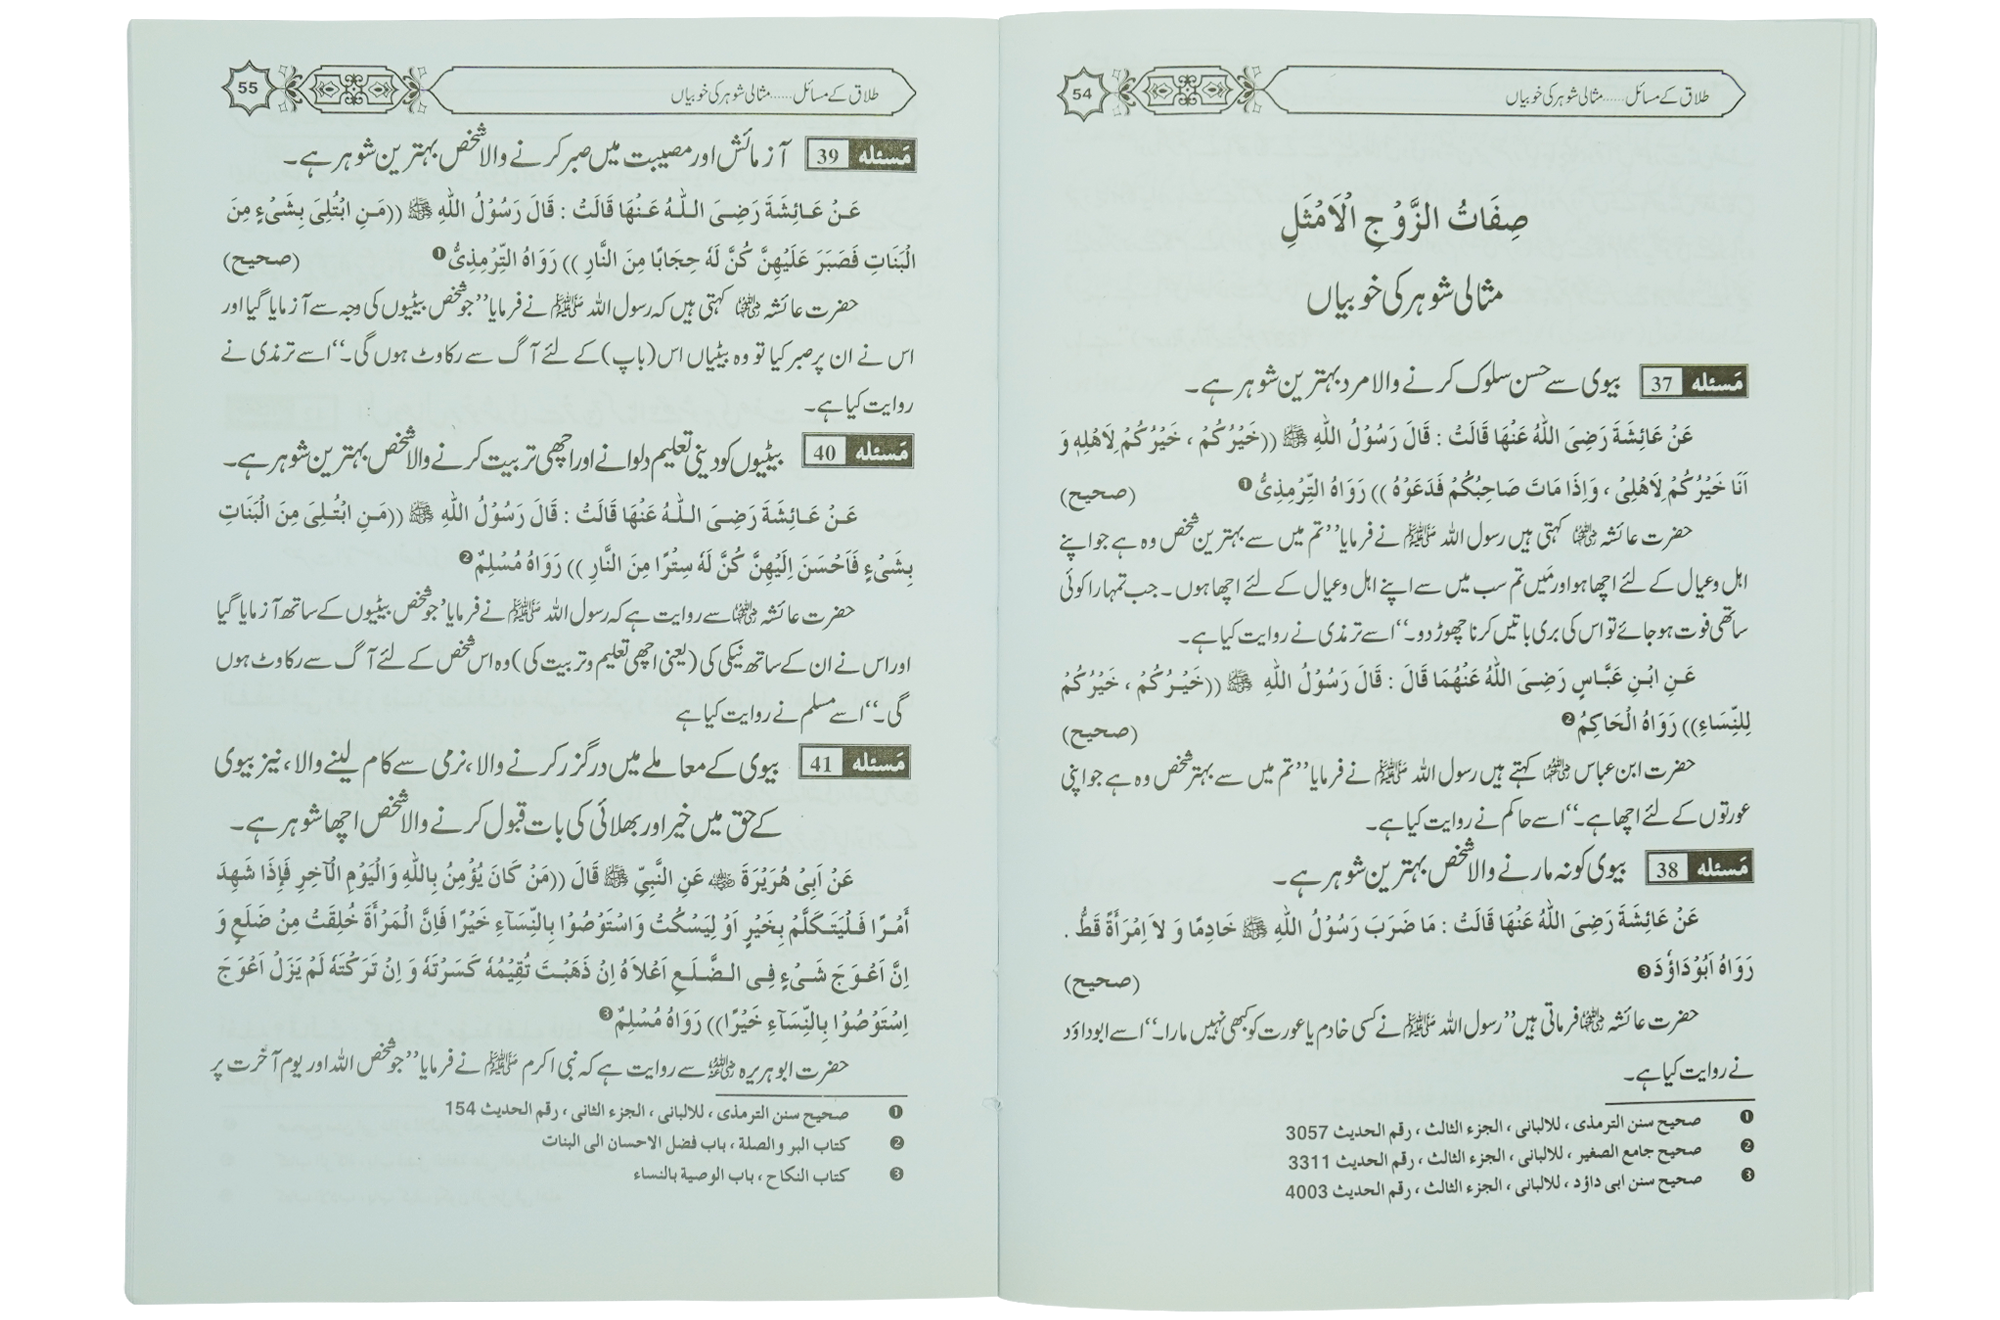 54
طلاق کے مسائل ...... مثالی شوہر کی خوبیاں
صِفَاتُ الزَّوْجِ الْاَمْثَلِ
مثالی شوہر کی خوبیاں
مَسئلہ 37 بیوی سے حسن سلوک کرنے والا مرد بہترین شوہر ہے۔
عَنْ عَائِشَةَ رَضِیَ اللّٰهُ عَنْهَا قَالَتْ : قَالَ رَسُوْلُ اللّٰهِ ﷺ ((خَيْرُكُمْ ، خَيْرُكُمْ لِاَهْلِهٖ وَ
اَنَا خَيْرُكُمْ لِاَهْلِیْ ، وَاِذَا مَاتَ صَاحِبُكُمْ فَدَعَوْهُ )) رَوَاهُ التِّرْمِذِیُّ ❶ (صحیح)
حضرت عائشہ رضی اللہ عنہا کہتی ہیں رسول اللہ ﷺ نے فرمایا ’’تم میں سے بہترین شخص وہ ہے جو اپنے
اہل و عیال کے لئے اچھا ہو اور مَیں تم سب میں سے اپنے اہل و عیال کے لئے اچھا ہوں۔ جب تمہارا کوئی
ساتھی فوت ہو جائے تو اس کی بری باتیں کرنا چھوڑ دو۔‘‘ اسے ترمذی نے روایت کیا ہے۔
عَنِ ابْنِ عَبَّاسٍ رَضِیَ اللّٰهُ عَنْهُمَا قَالَ : قَالَ رَسُوْلُ اللّٰهِ ﷺ ((خَيْرُكُمْ ، خَيْرُكُمْ
لِلنِّسَاءِ)) رَوَاهُ الْحَاكِمُ ❷ (صحیح)
حضرت ابن عباس رضی اللہ عنہما کہتے ہیں رسول اللہ ﷺ نے فرمایا ’’تم میں سے بہتر شخص وہ ہے جو اپنی
عورتوں کے لئے اچھا ہے۔‘‘ اسے حاکم نے روایت کیا ہے۔
مَسئلہ 38 بیوی کو نہ مارنے والا شخص بہترین شوہر ہے۔
عَنْ عَائِشَةَ رَضِیَ اللّٰهُ عَنْهَا قَالَتْ : مَا ضَرَبَ رَسُوْلُ اللّٰهِ ﷺ خَادِمًا وَ لاَ اِمْرَأَةً قَطُّ .
رَوَاهُ اَبُوْدَاوٗدَ ❸ (صحیح)
حضرت عائشہ رضی اللہ عنہا فرماتی ہیں ’’رسول اللہ ﷺ نے کسی خادم یا عورت کو کبھی نہیں مارا۔‘‘ اسے ابوداؤد
نے روایت کیا ہے۔
❶ صحیح سنن الترمذی ، للالبانی ، الجزء الثالث ، رقم الحدیث 3057
❷ صحیح جامع الصغیر ، للالبانی ، الجزء الثالث ، رقم الحدیث 3311
❸ صحیح سنن ابی داؤد ، للالبانی ، الجزء الثالث ، رقم الحدیث 4003
55
طلاق کے مسائل ...... مثالی شوہر کی خوبیاں
مَسئلہ 39 آزمائش اور مصیبت میں صبر کرنے والا شخص بہترین شوہر ہے۔
عَنْ عَائِشَةَ رَضِیَ اللّٰهُ عَنْهَا قَالَتْ : قَالَ رَسُوْلُ اللّٰهِ ﷺ ((مَنِ ابْتُلِیَ بِشَیْءٍ مِنَ
الْبَنَاتِ فَصَبَرَ عَلَيْهِنَّ كُنَّ لَهٗ حِجَابًا مِنَ النَّارِ )) رَوَاهُ التِّرْمِذِیُّ ❶ (صحیح)
حضرت عائشہ رضی اللہ عنہا کہتی ہیں کہ رسول اللہ ﷺ نے فرمایا ’’جو شخص بیٹیوں کی وجہ سے آزمایا گیا اور
اس نے ان پر صبر کیا تو وہ بیٹیاں اس (باپ) کے لئے آگ سے رکاوٹ ہوں گی۔‘‘ اسے ترمذی نے
روایت کیا ہے۔
مَسئلہ 40 بیٹیوں کو دینی تعلیم دلوانے اور اچھی تربیت کرنے والا شخص بہترین شوہر ہے۔
عَنْ عَائِشَةَ رَضِیَ اللّٰهُ عَنْهَا قَالَتْ : قَالَ رَسُوْلُ اللّٰهِ ﷺ ((مَنِ ابْتُلِیَ مِنَ الْبَنَاتِ
بِشَیْءٍ فَاَحْسَنَ اِلَيْهِنَّ كُنَّ لَهٗ سِتْرًا مِنَ النَّارِ )) رَوَاهُ مُسْلِمٌ ❷
حضرت عائشہ رضی اللہ عنہا سے روایت ہے کہ رسول اللہ ﷺ نے فرمایا ’جو شخص بیٹیوں کے ساتھ آزمایا گیا
اور اس نے ان کے ساتھ نیکی کی (یعنی اچھی تعلیم و تربیت کی) وہ اس شخص کے لئے آگ سے رکاوٹ ہوں
گی۔‘‘ اسے مسلم نے روایت کیا ہے
مَسئلہ 41 بیوی کے معاملے میں درگزر کرنے والا، نرمی سے کام لینے والا، نیز بیوی
کے حق میں خیر اور بھلائی کی بات قبول کرنے والا شخص اچھا شوہر ہے۔
عَنْ اَبِیْ هُرَيْرَةَ رضی اللہ عنہ عَنِ النَّبِیِّ ﷺ قَالَ ((مَنْ كَانَ يُؤْمِنُ بِاللّٰهِ وَالْيَوْمِ الْآخِرِ فَإِذَا شَهِدَ
أَمْرًا فَلْيَتَكَلَّمْ بِخَيْرٍ اَوْ لِيَسْكُتْ وَاسْتَوْصُوْا بِالنِّسَآءِ خَيْرًا فَاِنَّ الْمَرْأَةَ خُلِقَتْ مِنْ ضَلَعٍ وَ
اِنَّ اَعْوَجَ شَیْءٍ فِی الضَّلَعِ اَعْلَاهُ اِنْ ذَهَبْتَ تُقِيْمُهٗ كَسَرْتَهٗ وَ اِنْ تَرَكْتَهٗ لَمْ يَزَلْ اَعْوَجَ
اِسْتَوْصُوْا بِالنِّسَآءِ خَيْرًا)) رَوَاهُ مُسْلِمٌ ❸
حضرت ابو ہریرہ رضی اللہ عنہ سے روایت ہے کہ نبی اکرم ﷺ نے فرمایا ’’جو شخص اللہ اور یوم آخرت پر
❶ صحیح سنن الترمذی ، للالبانی ، الجزء الثانی ، رقم الحدیث 154
❷ کتاب البر والصلة ، باب فضل الاحسان الی البنات
❸ کتاب النکاح ، باب الوصیة بالنساء